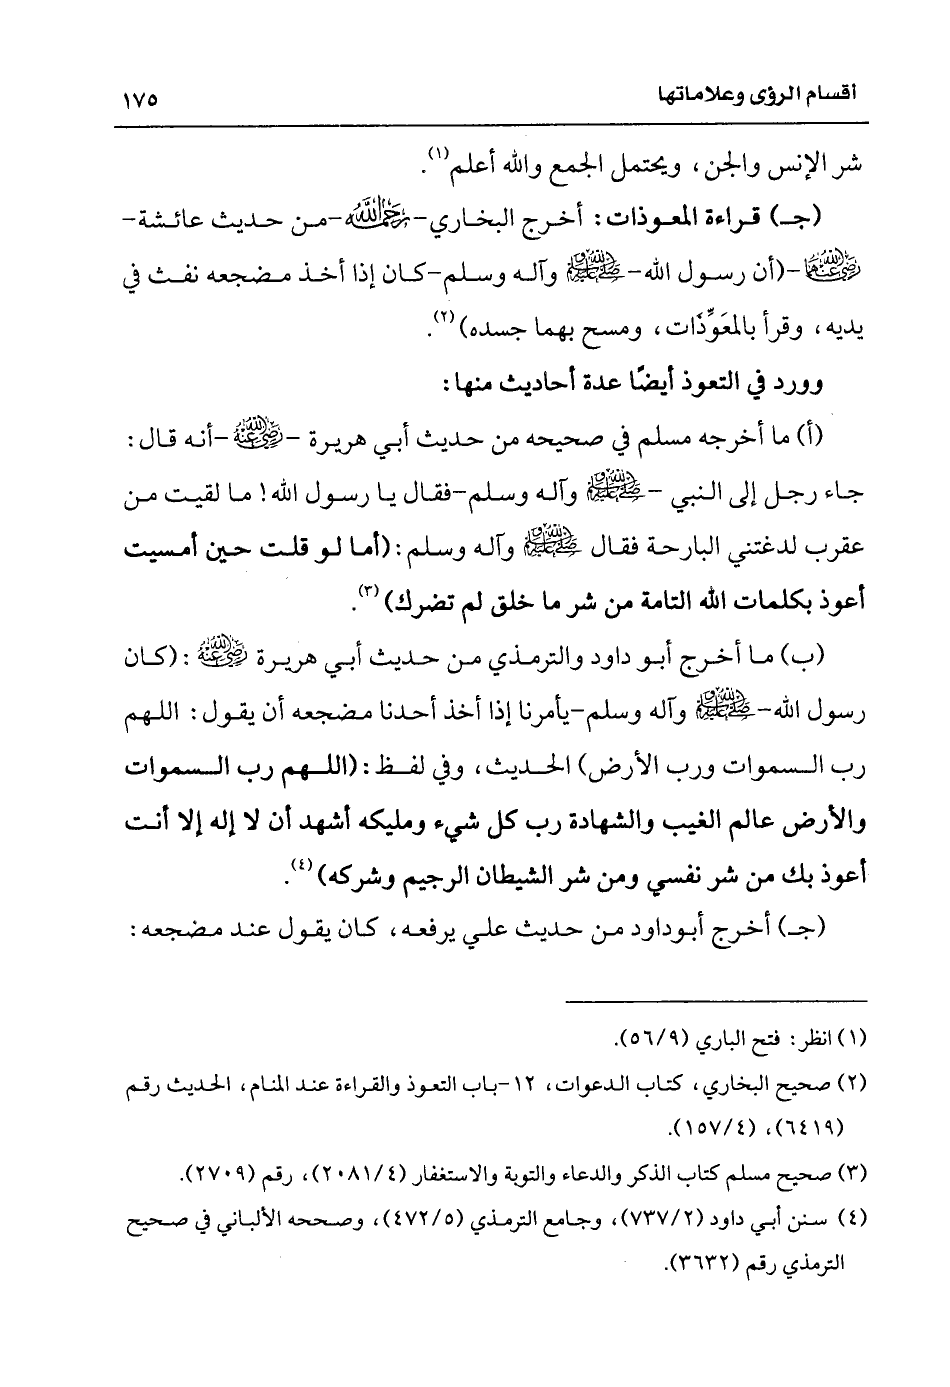 أقسام الرؤى وعلاماتها ١٧٥
شر الإنس والجن، ويحتمل الجمع والله أعلم(١).
(جـ) قراءة المعوذات: أخرج البخاري-رحمه الله-من حديث عائشة-
رضي الله عنها-(أن رسول الله-ﷺ وآله وسلم-كان إذا أخذ مضجعه نفث في
يديه، وقرأ بالمعَوِّذَات، ومسح بهما جسده)(٢).
وورد في التعوذ أيضًا عدة أحاديث منها:
(أ) ما أخرجه مسلم في صحيحه من حديث أبي هريرة -رضي الله عنه-أنه قال:
جاء رجل إلى النبي -ﷺ وآله وسلم-فقال يا رسول الله! ما لقيت من
عقرب لدغتني البارحة فقال ﷺ وآله وسلم:(أما لو قلت حين أمسيت
أعوذ بكلمات الله التامة من شر ما خلق لم تضرك)(٣).
(ب) ما أخرج أبو داود والترمذي من حديث أبي هريرة رضي الله عنه :(كان
رسول الله-ﷺ وآله وسلم-يأمرنا إذا أخذ أحدنا مضجعه أن يقول: اللهم
رب السموات ورب الأرض) الحديث، وفي لفظ:(اللهم رب السموات
والأرض عالم الغيب والشهادة رب كل شيء ومليكه أشهد أن لا إله إلا أنت
أعوذ بك من شر نفسي ومن شر الشيطان الرجيم وشركه)(٤).
(جـ) أخرج أبوداود من حديث علي يرفعه، كان يقول عند مضجعه:
(١) انظر: فتح الباري (٥٦/٩).
(٢) صحيح البخاري، كتاب الدعوات، ١٢-باب التعوذ والقراءة عند المنام، الحديث رقم
(٦٤١٩)، (١٥٧/٤).
(٣) صحيح مسلم كتاب الذكر والدعاء والتوبة والاستغفار (٢٠٨١/٤)، رقم (٢٧٠٩).
(٤) سنن أبي داود (٧٣٧/٢)، وجامع الترمذي (٤٧٢/٥)، وصححه الألباني في صحيح
الترمذي رقم (٣٦٣٢).